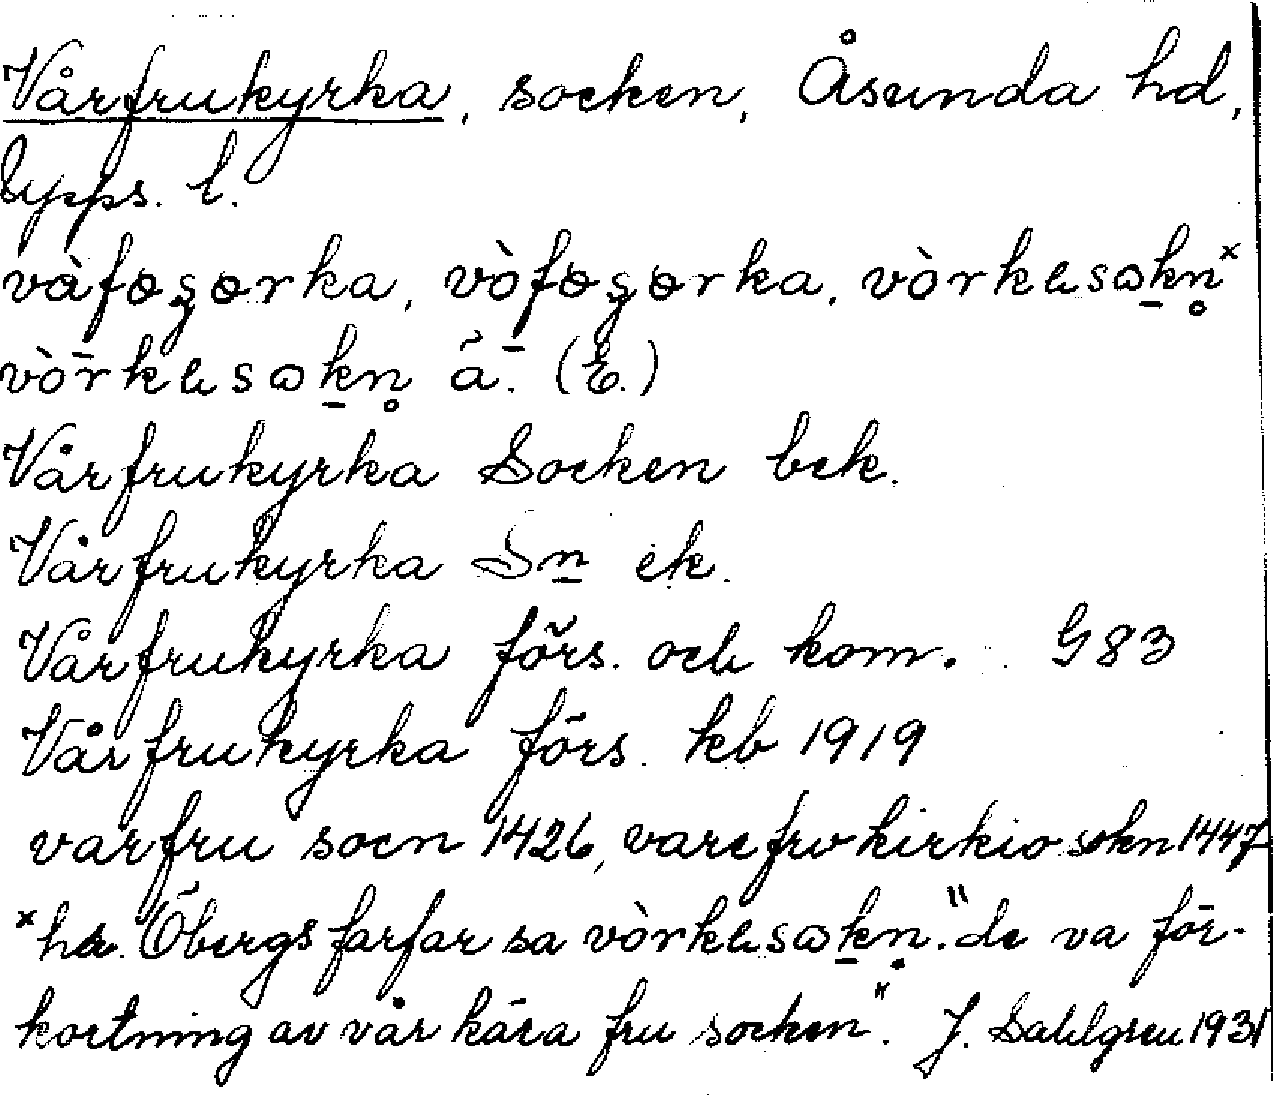 Vårfrukyrka, socken, Åsunda hd,
Upps. l.
vàfꙩʒꙩrka, vòfꙩʒꙩrka, vòrkɂsꙍkn̥ˣ
vòrkɂsꙍkn̥ ä. (E.)
Vårfrukyrka Socken bek.
Vårfrukyrka Sn ek.
Vårfrukyrka förs. och kom. G83
Vårfrukyrka förs. kb 1919
varfru socn 1426, varefrvkirkio sokn 1447
ˣhr. Öbergs farfar sa vòrkɂsꙍkn̥. "de va för-
kortning av vår kära fru socken". J. Sahlgren 1931